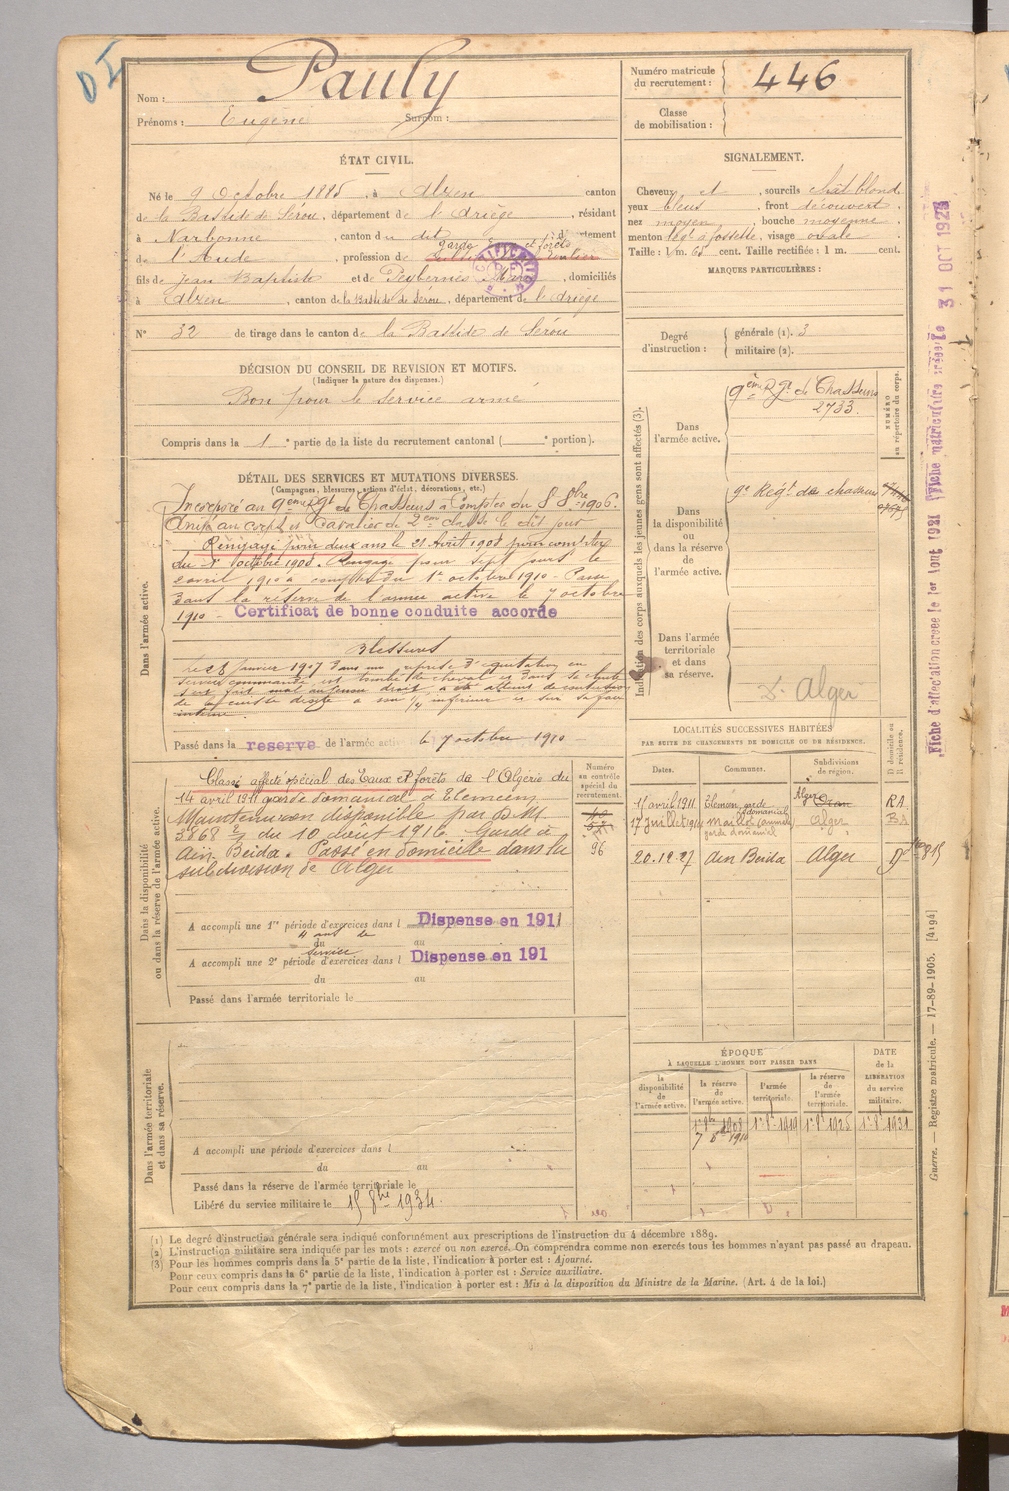 Nom : Pauly
Prénoms : Eugène Surnom :
Numéro matricule
du recrutement : 446
Classe
de mobilisation :
ÉTAT CIVIL.
Né le 9 Octobre 1885, à Alzen canton
de la Bastide de Sérou, département de l'Ariège, résidant
à Narbonne, canton du dit, département
garde et forêts
de l'Aude, profession de
fils de Jean Baptiste et de Peybernès, domiciliés
à Alzen, canton de la Bastide de Sérou, département de l'Ariège
N° 32 de tirage dans le canton de la Bastide de Sérou
SIGNALEMENT.
Cheveux et, sourcils chât blond
yeux bleus, front découvert
nez moyen, bouche moyenne
menton à fossette, visage ovale
Taille : 1 m. 65 cent. Taille rectifiée : 1 m. cent.
MARQUES PARTICULIÈRES :
Degré
d'instruction :
générale (1). 3
militaire (2).
DÉCISION DU CONSEIL DE REVISION ET MOTIFS.
(Indiquer la nature des dispenses.)
Bon pour le service armé
Compris dans la 1e partie de la liste du recrutement cantonal ( e portion).
DÉTAIL DES SERVICES ET MUTATIONS DIVERSES.
(Campagnes, blessures, actions d'éclat, décorations, etc.)
Dans l'armée active.
Incorporé au 9ème Rgt de Chasseurs à Compter du 8 8bre 1906.
Arrivé au corps et Cavalier de 2ème classe le dit jour
Rengagé pour deux ans le 21 Août 1908 pour compter
du 1er octobre 1908. Rengagé pour sept jours le
avril 1910 à compter du 1er octobre 1910 - Passé
dans la réserve de l'armée active le 7 octobre
1910 - Certificat de bonne conduite accordé
Blessures
Le 28 Janvier 1907 dans une reprise d'équitation en
service commandé est tombé de cheval et dans sa chute
s'est fait mal au genou droit, a été atteint de contusion
droite à son 1/4 inférieur et sur sa face
interne.
Passé dans la réserve de l'armée active le 7 octobre 1910
Dans la disponibilité
ou dans la réserve de l'armée active.
Classé affecté spécial des Eaux et forêts de l'Algérie du
14 avril 1911 garde domanial à Tlemcen
Maintenu non disponible par D.M.
3868 2/7 du 10 août 1916. Garde à
Aïn-Beida. Passé en domicile dans la
subdivision de Alger
Numéro
au contrôle
spécial du
recrutement.
96
A accompli une 1re période d'exercices dans l Dispense en 1911
4 ans de
du au
service
A accompli une 2e période d'exercices dans l Dispense en 191
du au
Passé dans l'armée territoriale le
Dans l'armée territoriale
et dans sa réserve.
A accompli une période d'exercices dans l
du au
Passé dans la réserve de l'armée territoriale le
Libéré du service militaire le 15 8bre 1934.
Indication des corps auxquels les jeunes gens sont affectés (3).
NUMÉRO
au répertoire du corps.
Dans
l'armée active.
9ème Rgt de Chasseurs
2733.
Dans
la disponibilité
ou dans la réserve
de
l'armée active.
9e Régt de chasseurs
Dans l'armée
territoriale
et dans
sa réserve.
Alger
LOCALITÉS SUCCESSIVES HABITÉES
PAR SUITE DE CHANGEMENTS DE DOMICILE OU DE RÉSIDENCE.
Dates. Communes. Subdivisions
de région.
D. domicile ou
R. résidence.
avril 1911 garde domanial Alger Oran RA
17 Juillet garde domanial Alger
20.12.27 Ain Beida Alger D
ÉPOQUE
À LAQUELLE L'HOMME DOIT PASSER DANS
DATE
de la
LIBÉRATION
du service
militaire.
la
disponibilité
de l'armée
active.
la réserve
de
l'armée active.
l'armée
territoriale.
la réserve
de
l'armée
territoriale.
1er 8bre 1908 1er 8 1919 1er 8 1925 1er 8 1931
7 8 1910
Fiche d'affectation créée le 1er Août 1921 Fiche matriculaire créée le 31 OCT 1928
Guerre. — Registre matricule. — 17-89-1905. [4194]
(1) Le degré d'instruction générale sera indiqué conformément aux prescriptions de l'instruction du 4 décembre 1889.
(2) L'instruction militaire sera indiquée par les mots : exercé ou non exercé. On comprendra comme non exercés tous les hommes n'ayant pas passé au drapeau.
(3) Pour les hommes compris dans la 5e partie de la liste, l'indication à porter est : Ajourné.
Pour ceux compris dans la 6e partie de la liste, l'indication à porter est : Service auxiliaire.
Pour ceux compris dans la 7e partie de la liste, l'indication à porter est : Mis à la disposition du Ministre de la Marine. (Art. 4 de la loi.)